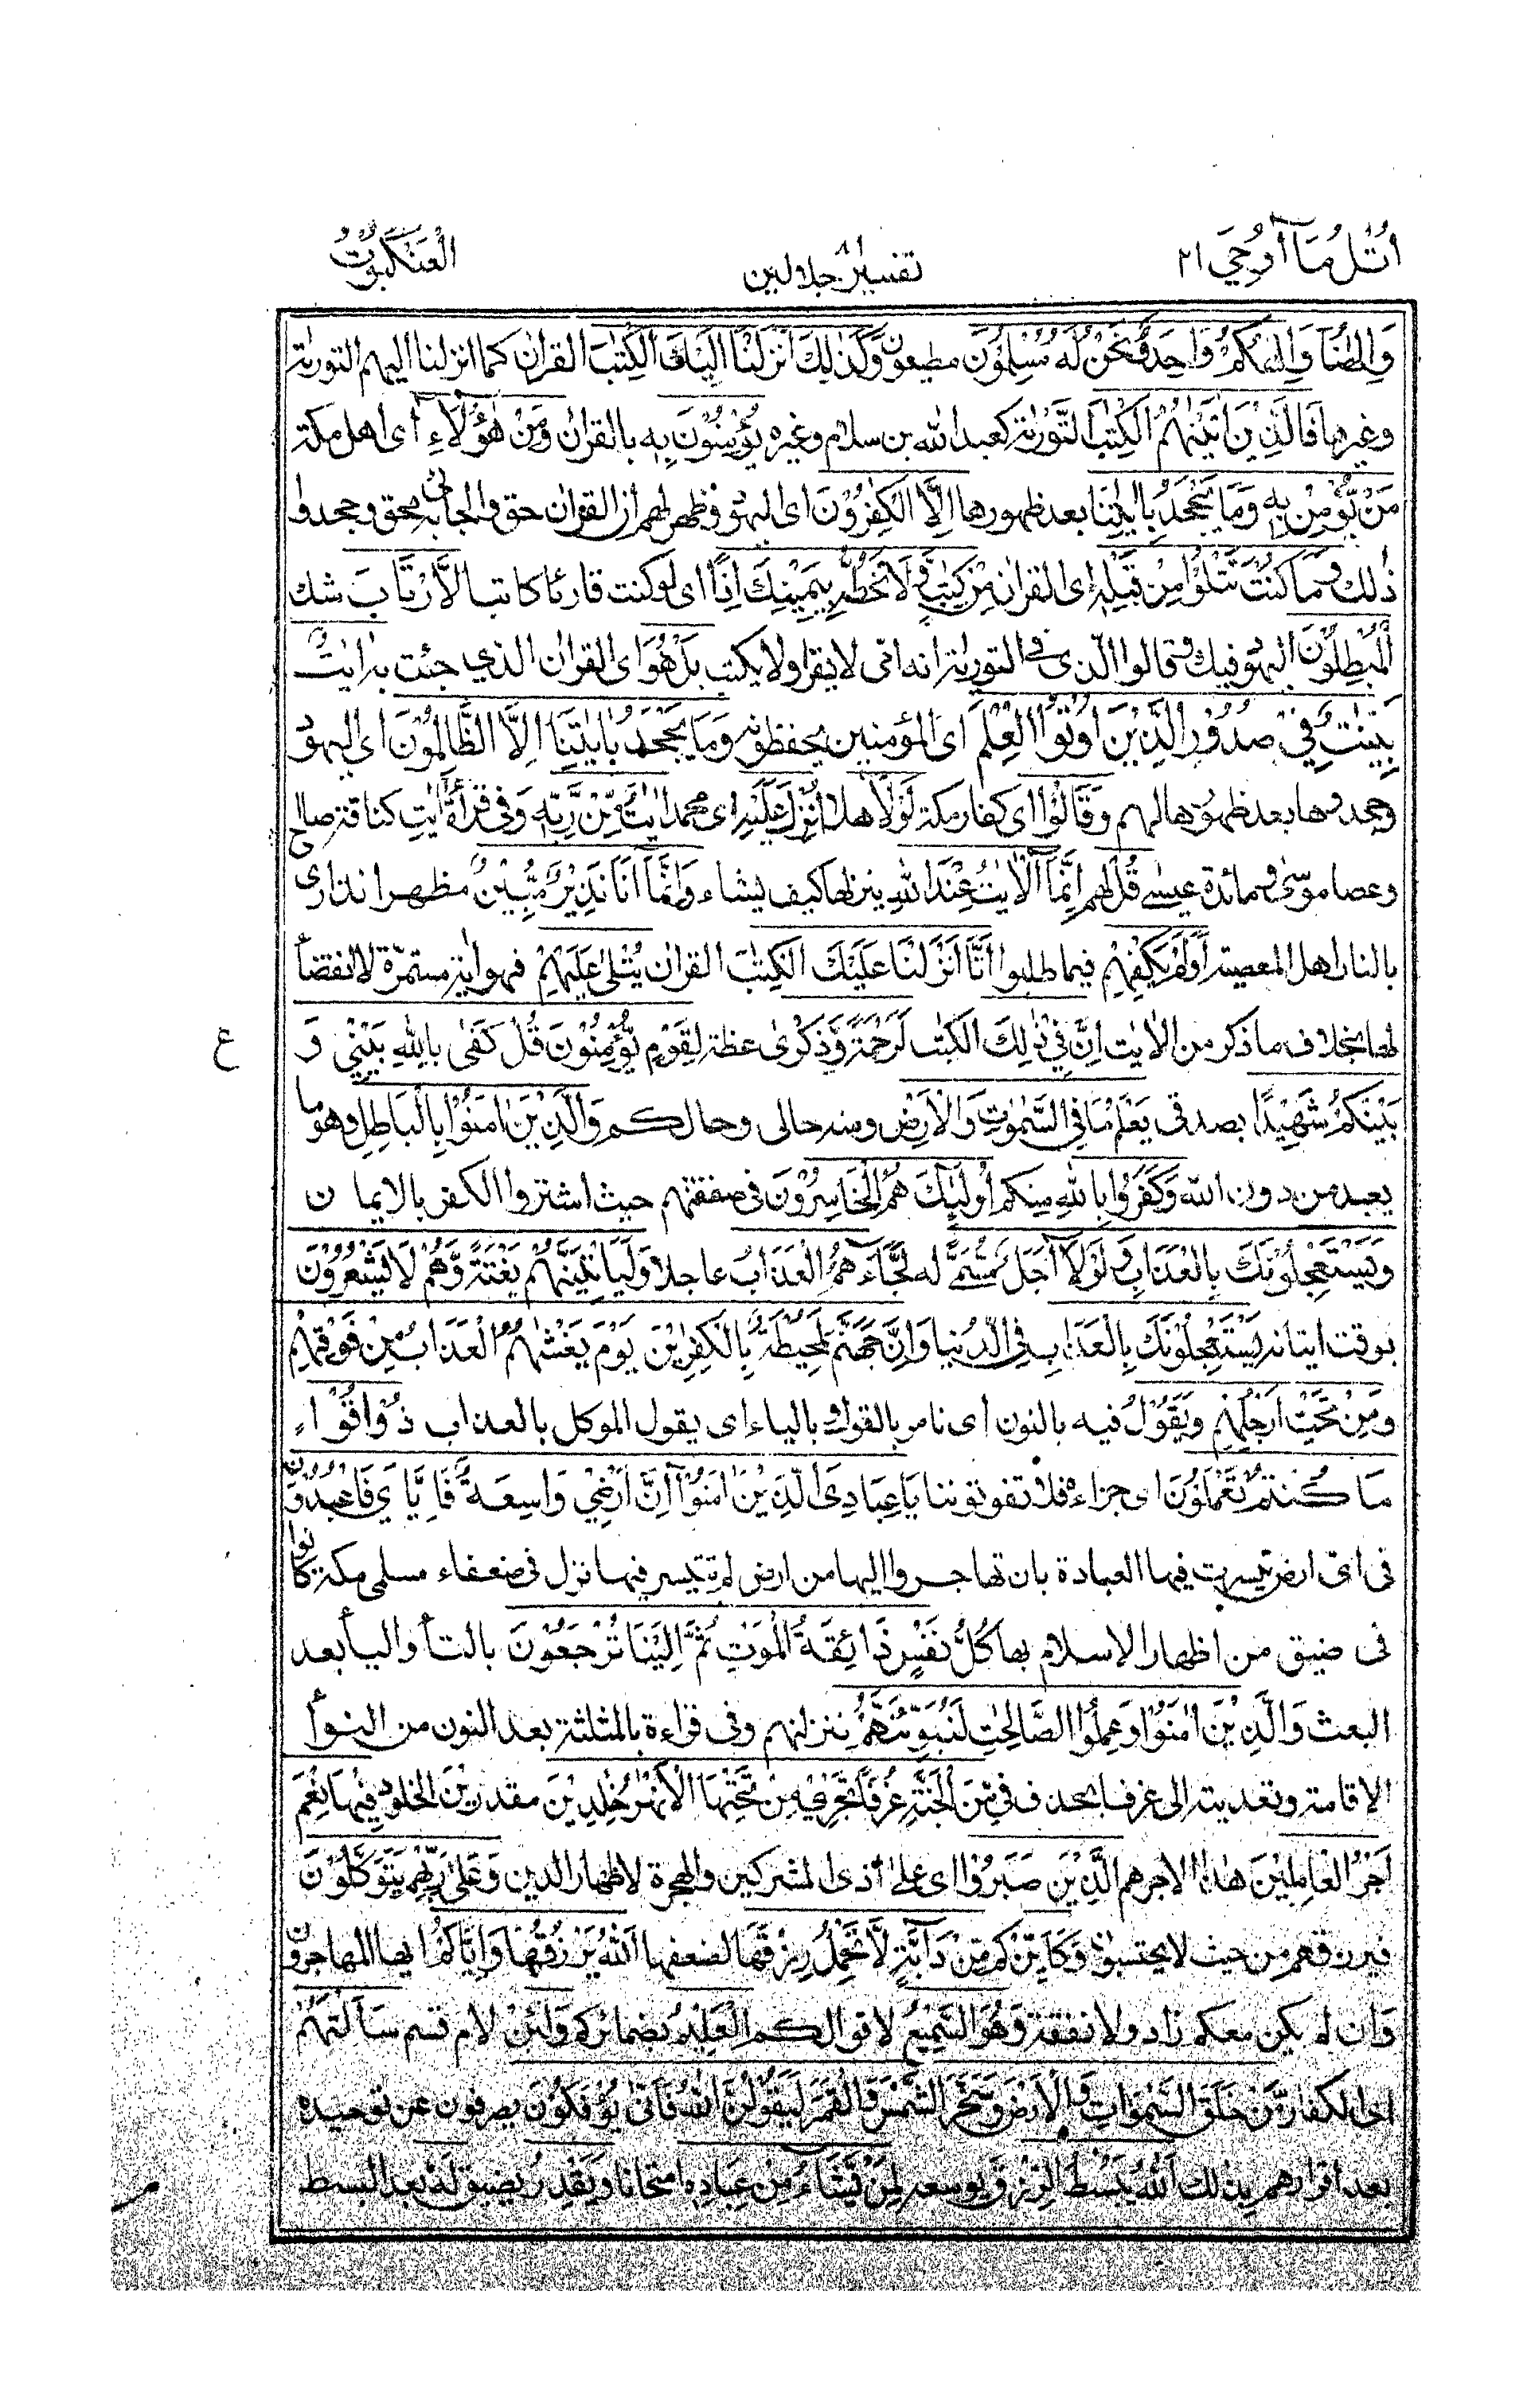 اُتْلُ مَآ اُوحِيَ ٢١
٨١
تفسير جلالين
العَنْكَبُوت
وَاِلٰهُنَا وَاِلٰهُكُمْ وَاحِدٌ وَّنَحْنُ لَهٗ مُسْلِمُوْنَ مطيعون وَكَذٰلِكَ اَنْزَلْنَا اِلَيْكَ الْكِتٰبَ القراٰن كما انزلنا اليهم التورٰية
وغيرها فَالَّذِيْنَ اٰتَيْنٰهُمُ الْكِتٰبَ التَّوْرٰية كعبد الله بن سلام وغيره يُؤْمِنُوْنَ بِهٖ بالقراٰن وَمِنْ هٰٓؤُلَاءِ اى اهل مكة
مَنْ يُّؤْمِنُ بِهٖ وَمَا يَجْحَدُ بِاٰيٰتِنَا بعد ظهورها اِلَّا الْكٰفِرُوْنَ اى اليهود وظهر لهم ان القراٰن حق والجائى به محق وجحدوا
ذٰلك وَمَا كُنْتَ تَتْلُوْا مِنْ قَبْلِهٖ اى القراٰن مِنْ كِتٰبٍ وَّلَا تَخُطُّهٗ بِيَمِيْنِكَ اِذًا اى لو كنت قارئا كاتبا لَّارْتَابَ شك
الْمُبْطِلُوْنَ اليهود فيك وقالوا الّذى فى التورٰية انه امّى لا يقرا ولا يكتب بَلْ هُوَ اى القراٰن الذي جئت به اٰيٰتٌ
بَيِّنٰتٌ فِيْ صُدُوْرِ الَّذِيْنَ اُوْتُوا الْعِلْمَ اى المؤمنين يحفظونه وَمَا يَجْحَدُ بِاٰيٰتِنَا اِلَّا الظَّالِمُوْنَ اى اليهود
وجحدوها بعد ظهورها لهم وَقَالُوْا اى كفار مكة لَوْلَا هلا اُنْزِلَ عَلَيْهِ اى محمد اٰيٰتٌ مِّنْ رَّبِّهٖ وفى قراءة اٰيٰت كناقة صالح
وعصا موسٰى ومائدة عيسٰى قُلْ لهم اِنَّمَا الْاٰيٰتُ عِنْدَ اللهِ ينزلها كيف يشاء وَاِنَّمَآ اَنَا نَذِيْرٌ مُّبِيْنٌ مظهر انذارى
بالنار اهل المعصية اَوَلَمْ يَكْفِهِمْ فيما طلبوا اَنَّا اَنْزَلْنَا عَلَيْكَ الْكِتٰبَ القراٰن يُتْلٰى عَلَيْهِمْ فهو اٰية مستمرّة لا انقضاء
لها بخلاف ما ذكر من الاٰيٰت اِنَّ فِيْ ذٰلِكَ الكتٰب لَرَحْمَةً وَّذِكْرٰى عظة لِقَوْمٍ يُّؤْمِنُوْنَ قُلْ كَفٰى بِاللهِ بَيْنِيْ وَ
ع
بَيْنَكُمْ شَهِيْدًا بصدقى يَعْلَمُ مَا فِى السَّمٰوٰتِ وَالْاَرْضِ ومنه حالى وحالكم وَالَّذِيْنَ اٰمَنُوْا بِالْبَاطِلِ وهو ما
يعبد من دون الله وَكَفَرُوْا بِاللهِ منكم اُولٰٓئِكَ هُمُ الْخَاسِرُوْنَ فى صفقتهم حيث اشتروا الكفر بالايمان
وَيَسْتَعْجِلُوْنَكَ بِالْعَذَابِ وَلَوْلَآ اَجَلٌ مُّسَمًّى له لَّجَآءَهُمُ الْعَذَابُ عاجلا وَلَيَاْتِيَنَّهُمْ بَغْتَةً وَّهُمْ لَا يَشْعُرُوْنَ
بوقت اتيانه يَسْتَعْجِلُوْنَكَ بِالْعَذَابِ فى الدّنيا وَاِنَّ جَهَنَّمَ لَمُحِيْطَةٌۢ بِالْكٰفِرِيْنَ يَوْمَ يَغْشٰهُمُ الْعَذَابُ مِنْ فَوْقِهِمْ
وَمِنْ تَحْتِ اَرْجُلِهِمْ وَيَقُوْلُ فيه بالنون اى نامر بالقول وبالياء اى يقول الموكل بالعذاب ذُوْقُوْا
مَا كُنْتُمْ تَعْمَلُوْنَ اى جزاءه فلا تفوتوننا يَا عِبَادِىَ الَّذِيْنَ اٰمَنُوْٓا اِنَّ اَرْضِيْ وَاسِعَةٌ فَاِيَّايَ فَاعْبُدُوْنِ
فى اىّ ارض تيسرت فيها العبادة بان تهاجروا اليها من ارض لم تتيسر فيها نزل فى ضعفاء مسلمى مكة كانوا
فى ضيق من اظهار الاسلام بها كُلُّ نَفْسٍ ذَائِقَةُ الْمَوْتِ ثُمَّ اِلَيْنَا تُرْجَعُوْنَ بالتاء والياء بعد
البعث وَالَّذِيْنَ اٰمَنُوْا وَعَمِلُوا الصَّالِحٰتِ لَنُبَوِّئَنَّهُمْ ننزلنهم وفى قراءة بالمثلثة بعد النون من الثواء
الاقامة وتعديته الى غرفا بحذف فى مِّنَ الْجَنَّةِ غُرَفًا تَجْرِيْ مِنْ تَحْتِهَا الْاَنْهٰرُ خٰلِدِيْنَ مقدرين الخلود فِيْهَا نِعْمَ
اَجْرُ الْعَامِلِيْنَ هٰذا الاجر هم الَّذِيْنَ صَبَرُوْا اى على اذى المشركين والهجرة لاظهار الدين وَعَلٰى رَبِّهِمْ يَتَوَكَّلُوْنَ
فيرزقهم من حيث لا يحتسبون وَكَاَيِّنْ كم مِّنْ دَآبَّةٍ لَّا تَحْمِلُ رِزْقَهَا لضعفها اَللهُ يَرْزُقُهَا وَاِيَّاكُمْ ايها المهاجرون
وان لم يكن معكم زاد ولا نفقة وَهُوَ السَّمِيْعُ لاقوالكم الْعَلِيْمُ بضمائركم وَلَئِنْ لام قسم سَاَلْتَهُمْ
اى الكفار مَّنْ خَلَقَ السَّمٰوَاتِ وَالْاَرْضَ وَسَخَّرَ الشَّمْسَ وَالْقَمَرَ لَيَقُوْلُنَّ اللهُ فَاَنّٰى يُؤْفَكُوْنَ يصرفون عن توحيده
بعد اقرارهم بذلك اَللهُ يَبْسُطُ الرِّزْقَ يوسعه لِمَنْ يَّشَآءُ مِنْ عِبَادِهٖ امتحانا وَيَقْدِرُ يضيق لَهٗ بعد البسط